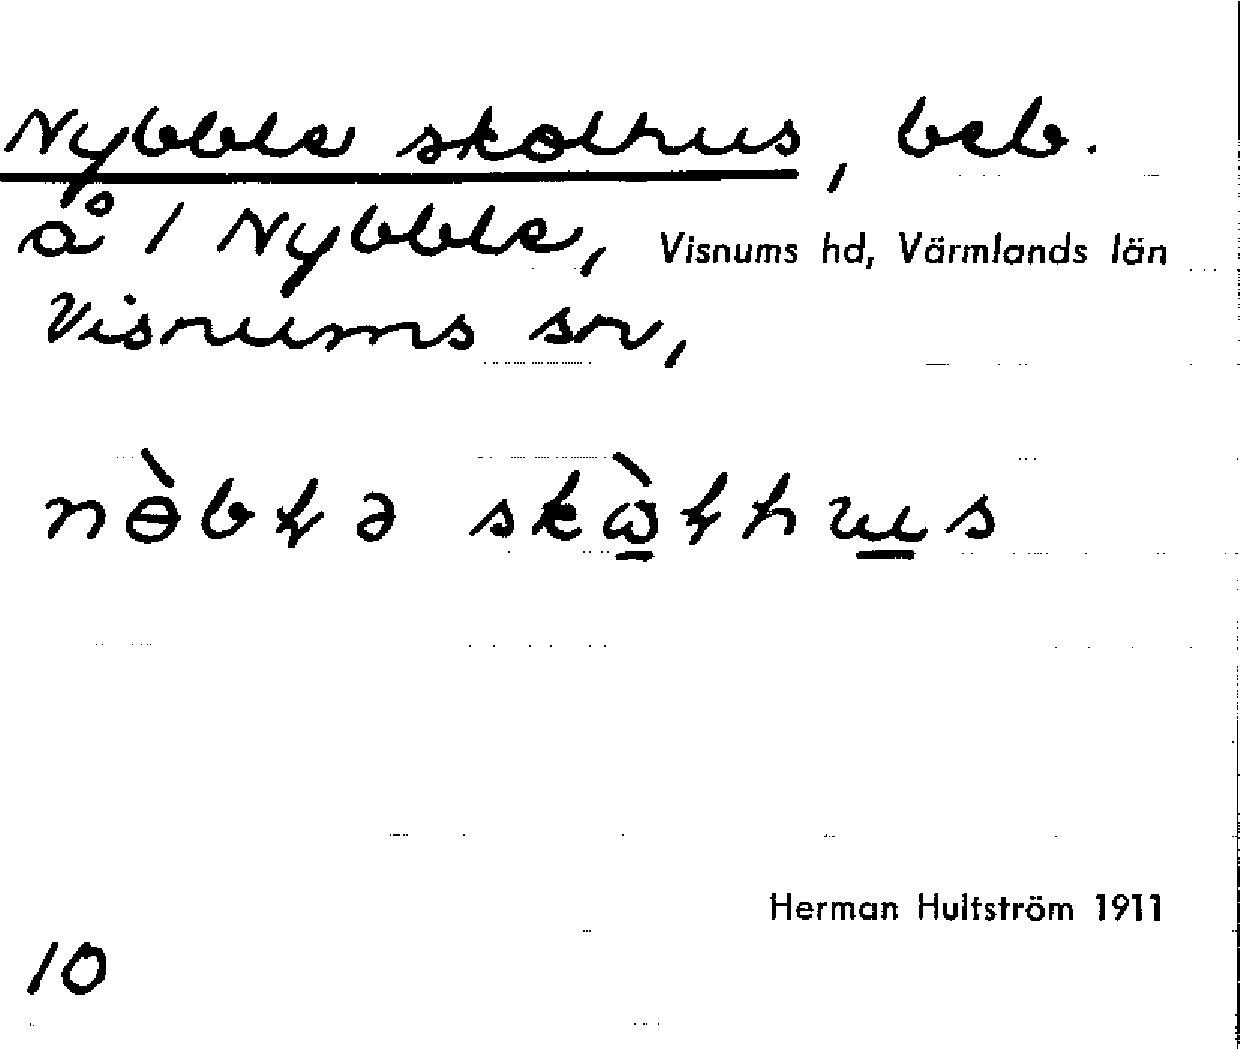 Nybble skolhus, beb.
å 1 Nybble, Visnums hd, Värmlands län
Visnums sn,
nɵ̀bɽə skὼ̱ɽhu̱s
Herman Hultström 1911
10